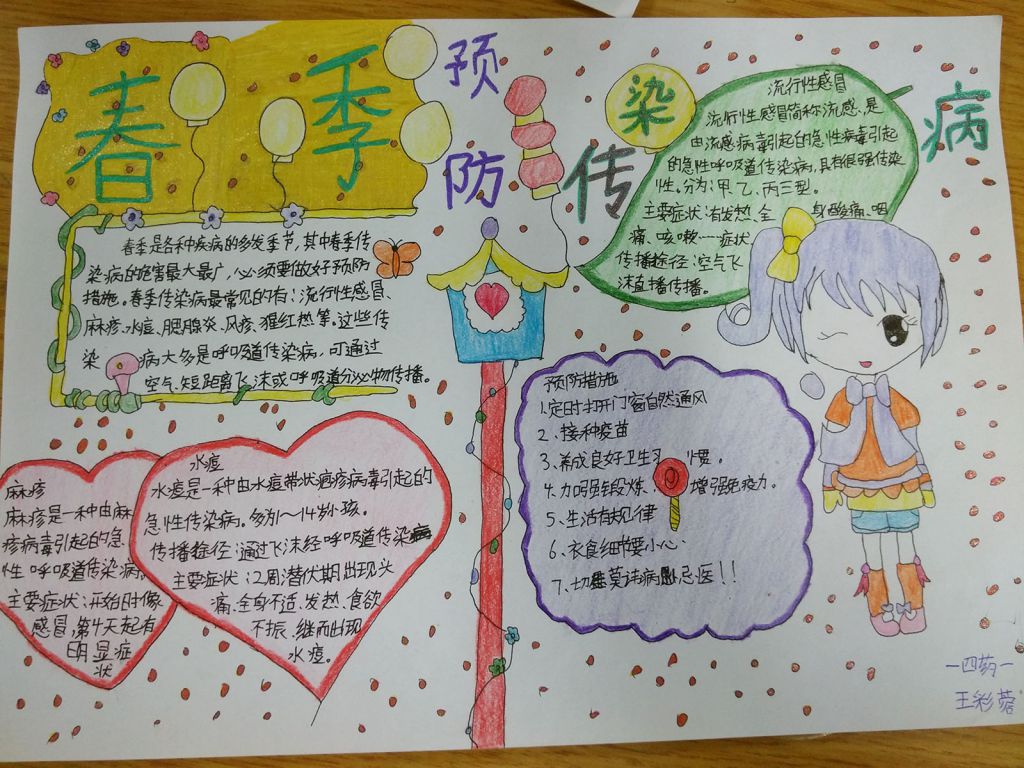 春季预防传染病
春季是各种疾病的多发季节,其中春季传
染病的危害最大最广,必须要做好预防
措施。春季传染病最常见的有:流行性感冒、
麻疹、水痘、腮腺炎、风疹、猩红热等。这些传
染病大多是呼吸道传染病,可通过
空气、短距离飞沫或呼吸道分泌物传播。
流行性感冒
流行性感冒简称流感,是
由流感病毒引起的急性病毒引起
的急性呼吸道传染病,具有很强传染
性。分为:甲、乙、丙三型。
主要症状:有发热、全身酸痛、咽
痛、咳嗽……症状
传播途径:空气飞
沫直播传播。
麻疹
麻疹是一种由麻
疹病毒引起的急
性呼吸道传染病。
主要症状:开始时像
感冒,第4天起有
明显症
状
水痘
水痘是一种由水痘带状疱疹病毒引起的
急性传染病。多为1~14岁小孩。
传播途径:通过飞沫经呼吸道传染
主要症状:2周潜伏期出现头
痛、全身不适、发热、食欲
不振、继而出现
水痘。
预防措施
1、定时打开门窗自然通风
2、接种疫苗
3、养成良好卫生习惯。
4、加强锻炼,增强免疫力。
5、生活有规律
6、衣食细节要小心
7、切忌莫讳病忌医!!
一四药一
王彩蓉